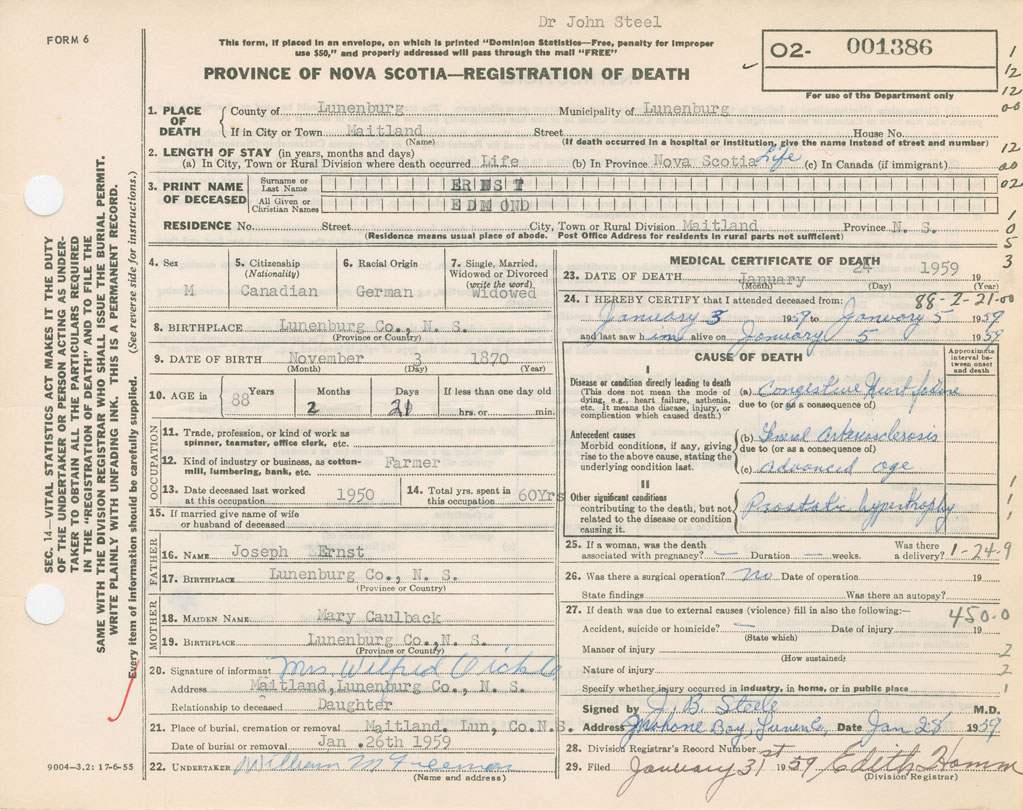 Dr John Steel
FORM 6
This form, if placed in an envelope, on which is printed "Dominion Statistics—Free, penalty for improper
use $50," and properly addressed will pass through the mail "FREE"
O2- 001386
For use of the Department only
PROVINCE OF NOVA SCOTIA—REGISTRATION OF DEATH
1. PLACE OF DEATH { County of Lunenburg Municipality of Lunenburg
If in City or Town Maitland Street House No.
(Name) (If death occurred in a hospital or institution, give the name instead of street and number)
2. LENGTH OF STAY (in years, months and days)
(a) In City, Town or Rural Division where death occurred Life (b) In Province Nova Scotia Life (c) In Canada (if immigrant)
3. PRINT NAME OF DECEASED
Surname or Last Name ERNST
All Given or Christian Names EDMOND
RESIDENCE No. Street City, Town or Rural Division Maitland Province N. S.
(Residence means usual place of abode. Post Office Address for residents in rural parts not sufficient)
4. Sex M
5. Citizenship (Nationality) Canadian
6. Racial Origin German
7. Single, Married, Widowed or Divorced (write the word) Widowed
8. BIRTHPLACE Lunenburg Co., N. S.
(Province or Country)
9. DATE OF BIRTH November 3 1870
(Month) (Day) (Year)
10. AGE in { Years 88 Months 2 Days 21 If less than one day old hrs. or min.
OCCUPATION
11. Trade, profession, or kind of work as spinner, teamster, office clerk, etc.
12. Kind of industry or business, as cotton-mill, lumbering, bank, etc. Farmer
13. Date deceased last worked at this occupation 1950
14. Total yrs. spent in this occupation 60Yrs
15. If married give name of wife or husband of deceased
FATHER
16. NAME Joseph Ernst
17. BIRTHPLACE Lunenburg Co., N. S.
(Province or Country)
MOTHER
18. MAIDEN NAME Mary Caulback
19. BIRTHPLACE Lunenburg Co.,N. S.
(Province or Country)
20. Signature of informant Mrs. Wilfred
Address Maitland,Lunenburg Co., N. S.
Relationship to deceased Daughter
21. Place of burial, cremation or removal Maitland. Lun, Co.N.S.
Date of burial or removal Jan .26th 1959
22. UNDERTAKER William M Freeman
(Name and address)
MEDICAL CERTIFICATE OF DEATH
23. DATE OF DEATH January 24 1959 19
(Month) (Day) (Year)
88-2-21-00
24. I HEREBY CERTIFY that I attended deceased from:
January 3 1959 to January 5 1959
and last saw him alive on January 5 1959
CAUSE OF DEATH
Approximate interval between onset and death
I
Disease or condition directly leading to death
(This does not mean the mode of dying, e.g., heart failure, asthenia, etc. It means the disease, injury, or complication which caused death.)
(a) Congestive Heart failure
due to (or as a consequence of)
Antecedent causes
Morbid conditions, if any, giving rise to the above cause, stating the underlying condition last.
(b) General Arteriosclerosis
due to (or as a consequence of)
(c) Advanced age
II
Other significant conditions
contributing to the death, but not related to the disease or condition causing it.
Prostatic hypertrophy
25. If a woman, was the death associated with pregnancy? — Duration — weeks. Was there a delivery? 1-24-9
26. Was there a surgical operation? no Date of operation 19
State findings Was there an autopsy?
27. If death was due to external causes (violence) fill in also the following:— 450.0
Accident, suicide or homicide? — Date of injury 19
(State which)
Manner of injury
(How sustained)
Nature of injury
Specify whether injury occurred in industry, in home, or in public place
Signed by J. B. Steele M.D.
Address Mahone Bay, Lunen Co, Date Jan 28 1959
28. Division Registrar's Record Number
29. Filed January 31st 1959 Edith
(Division Registrar)
SEC. 14—VITAL STATISTICS ACT MAKES IT THE DUTY
OF THE UNDERTAKER OR PERSON ACTING AS UNDER-
TAKER TO OBTAIN ALL THE PARTICULARS REQUIRED
IN THE "REGISTRATION OF DEATH" AND TO FILE THE
SAME WITH THE DIVISION REGISTRAR WHO SHALL ISSUE THE BURIAL PERMIT.
WRITE PLAINLY WITH UNFADING INK. THIS IS A PERMANENT RECORD.
Every item of information should be carefully supplied. (See reverse side for instructions.)
9004-3.2: 17-6-55
1
12
12
00
12
00
02
1
0
5
3
1
1
1
2
2
1